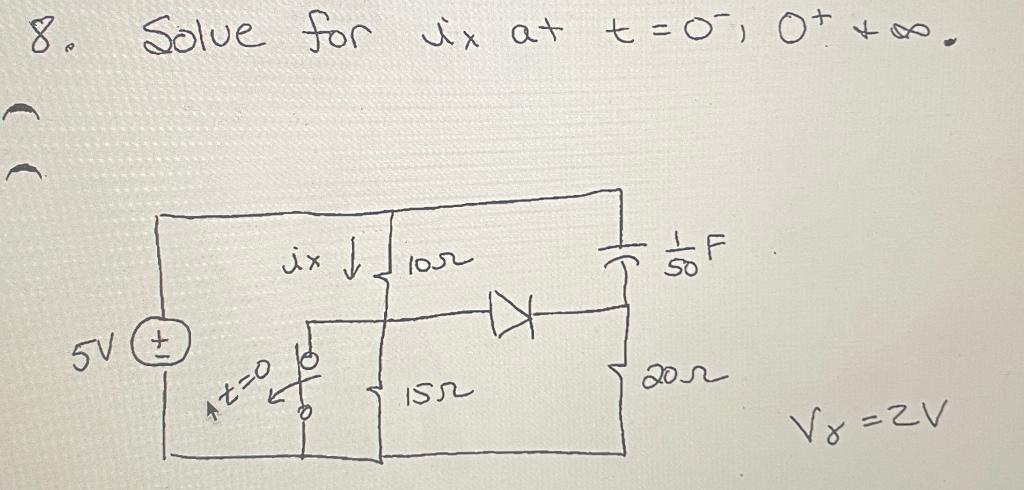 8. Solve for ix at t = 0⁻, 0⁺ + ∞.
ix ↓ 10Ω
1/50 F
5V
+
−
t=0
15Ω
20Ω
Vγ = 2V